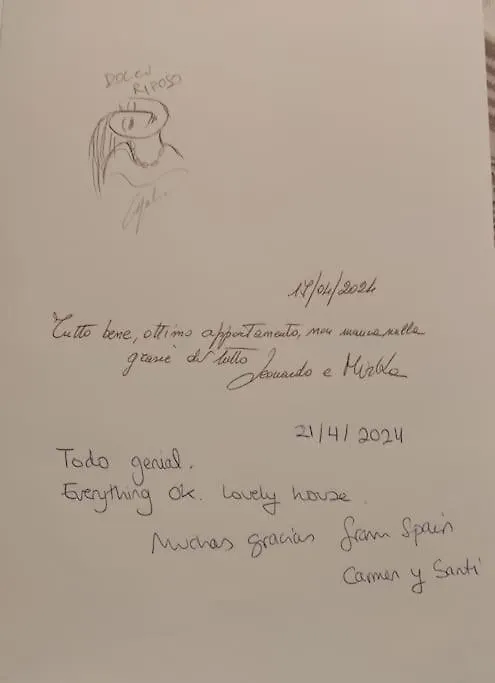 DOLCE
RIPOSO
17/04/2024
Tutto bene, ottimo appartamento, non manca nulla
grazie di tutto Leonardo e Mirka
21/4/2024
Todo genial.
Everything ok. Lovely house.
Muchas gracias from Spain
Carmen y Santi